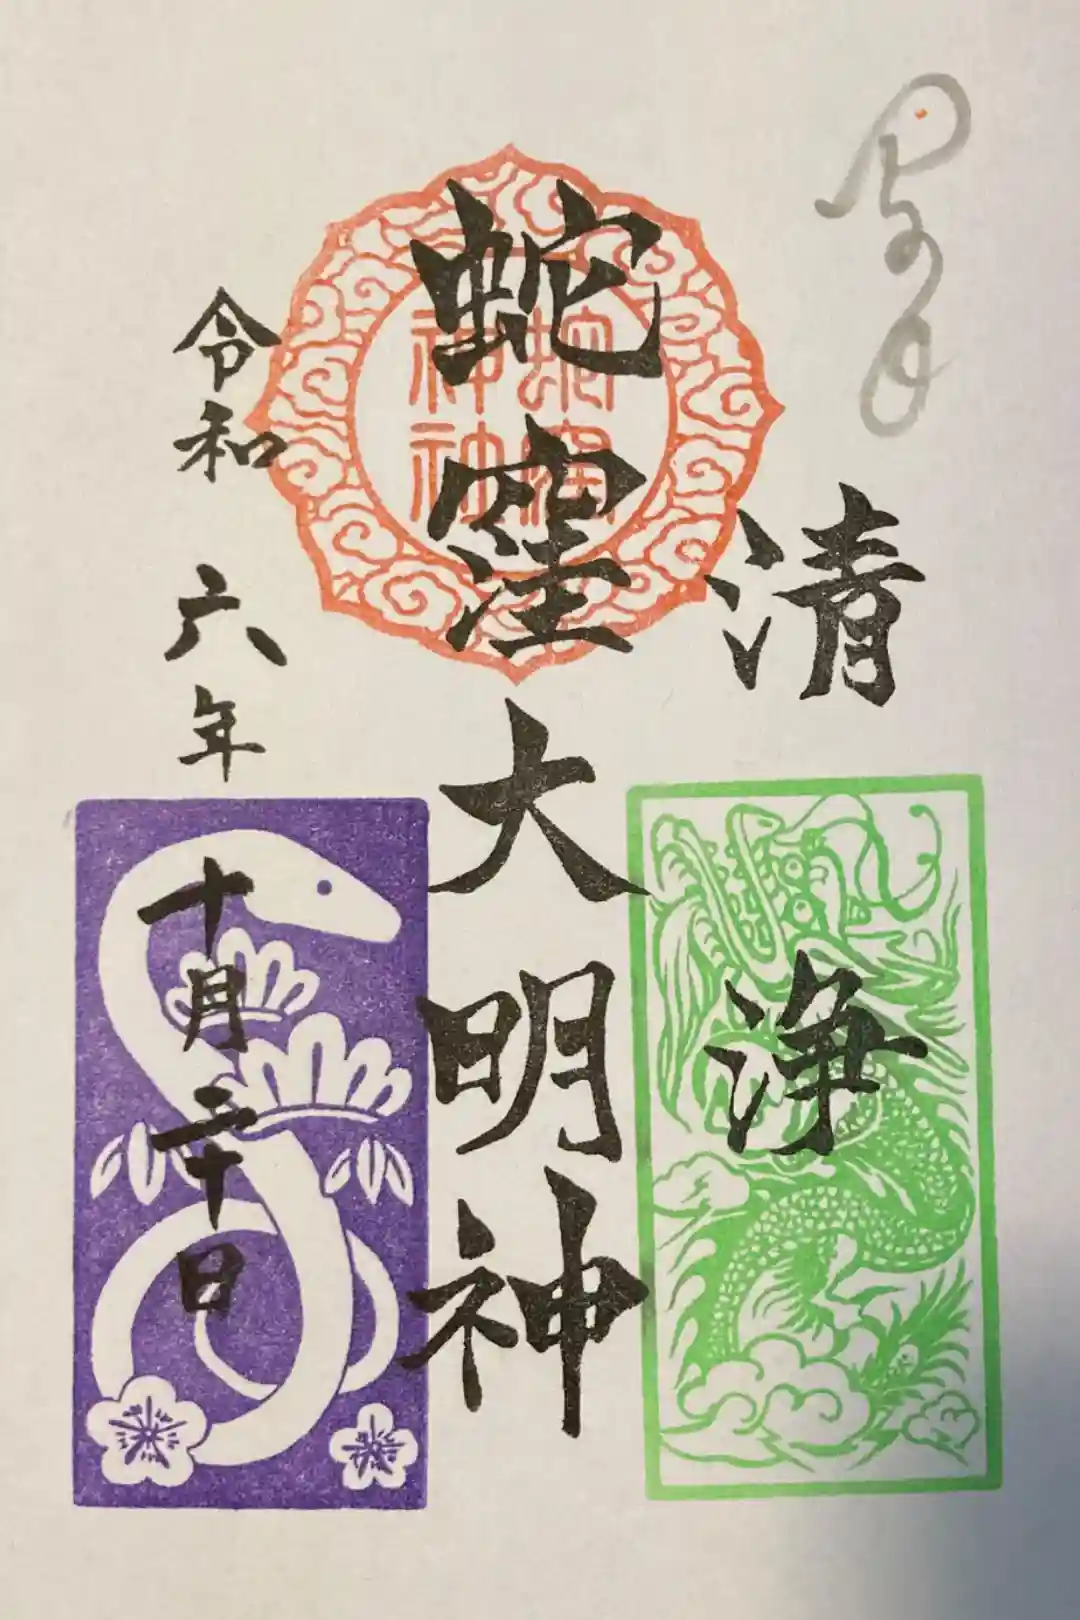 清浄
蛇窪大明神
蛇窪神社
令和六年十月二十日